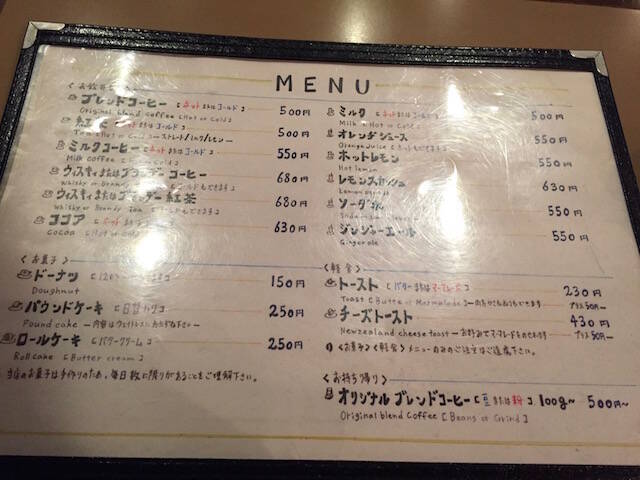 MENU
ブレンドコーヒー [ホットまたはコールド] 500円
Original blend coffee [Hot or Cold]
紅 コールド] 500円
Tea ストレート/ミルク/レモン
ミルクコーヒー [ホットまたはコールド] 550円
Milk coffee Cold]
ウィスキィまたはブランデー コーヒー 680円
Whisky or Brandy コールドもできます]
ウィスキィまたはブランデー 紅茶 680円
Whisky or Brandy Tea コールドもできます]
ココア [ホット コールド] 630円
Cocoa [Hot or Cold]
〈お菓子〉
ドーナツ 150円
Doughnut
パウンドケーキ [日替わり] 250円
Pound cake ー内容はウェイトレスにおたずね下さいー
ロールケーキ [バタークリーム] 250円
Roll cake [Butter cream]
当店のお菓子は手作りのため、毎日数に限りがあることをご理解下さい。
ミルク [ホットまたはコールド] 500円
Milk [Hot or Cold]
オレンヂジュース 550円
Orange juice [ホットもできます]
ホットレモン 550円
Hot lemon
レモンスカッシュ 630円
Lemon
ソーダ水 550円
Soda
ジンジャーエール 550円
Ginger ale
〈軽食〉
トースト [バターまたはマーマレード] 230円
Toast [Butter or Marmalade] プラス50円ー
チーズトースト 430円
Newzealand cheese toast ーお好みでマーマレードものせますー プラス50円ー
〈お菓子〉〈軽食〉メニューのみのご注文はご遠慮下さい。
〈お持ち帰り〉
オリジナル ブレンドコーヒー [豆または粉] 100g〜 500円〜
Original blend coffee [Beans or Grind]